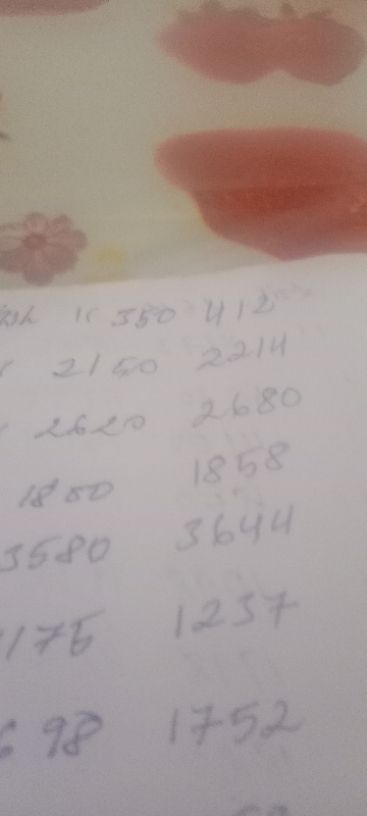 350 412
2150 2214
2620 2680
1850 1858
3580 3644
1175 1237
698 1752